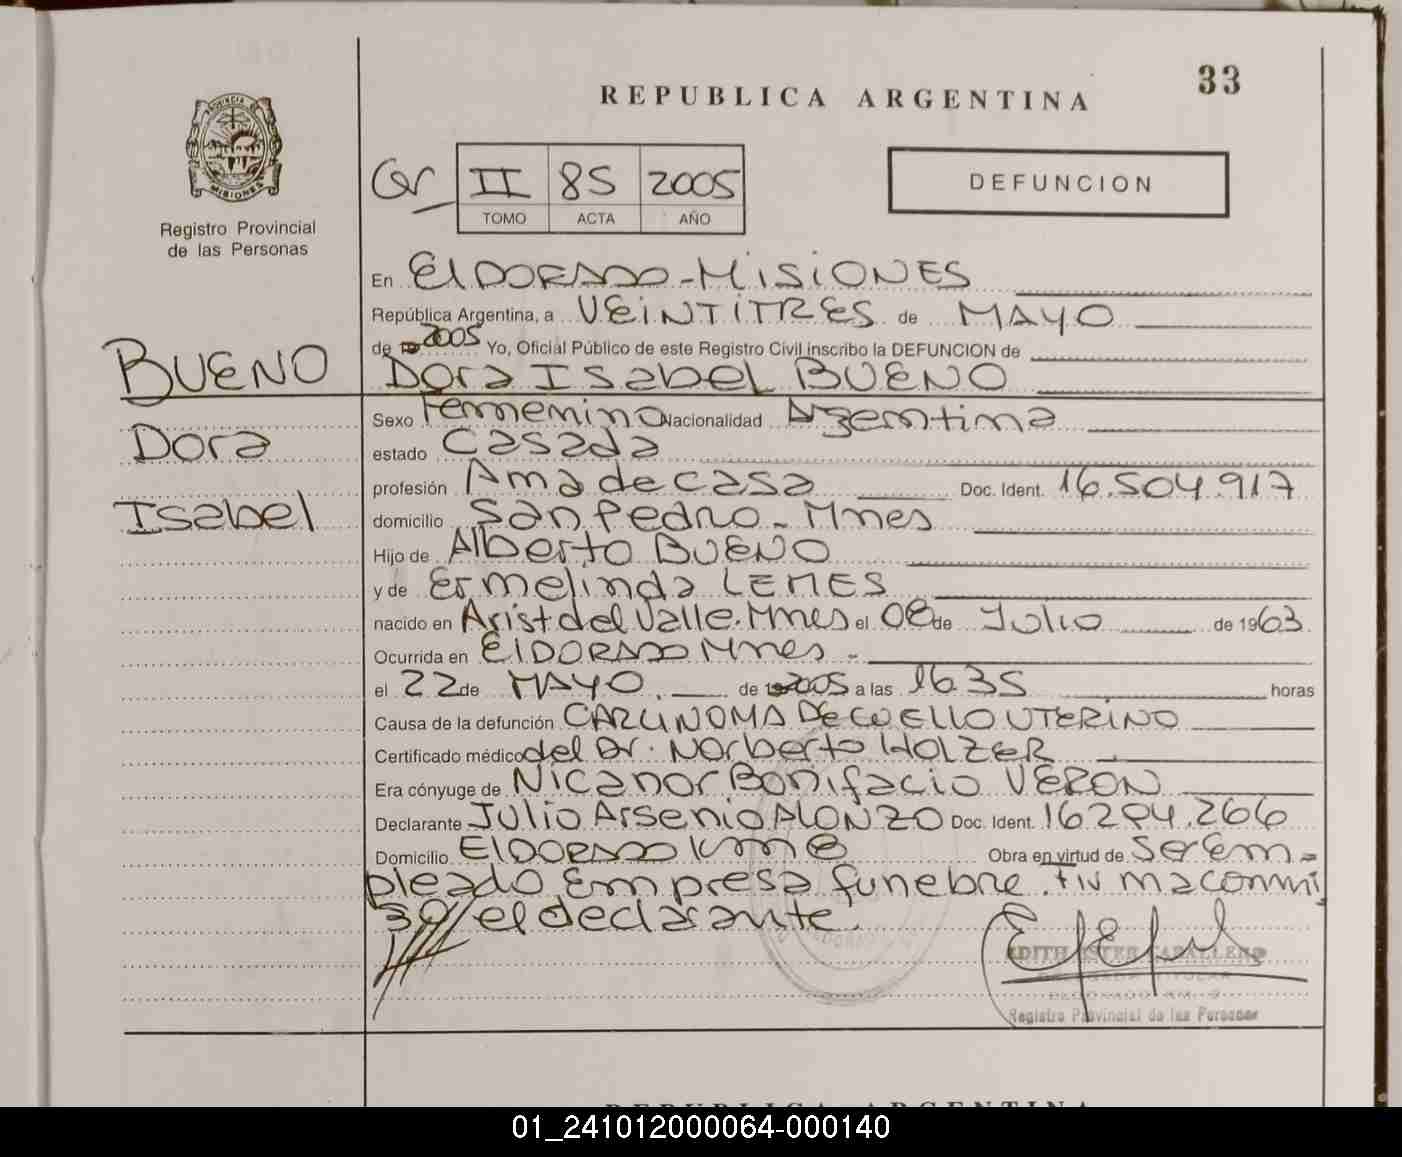 33
REPUBLICA ARGENTINA
PROVINCIA DE
MISIONES
Registro Provincial
de las Personas
Gr II 85 2005
TOMO ACTA AÑO
DEFUNCION
En ElDORADO-MISIONES
República Argentina, a VEINTITRES de MAYO
de 2005 Yo, Oficial Público de este Registro Civil inscribo la DEFUNCION de
BUENO
Dora Isabel BUENO
Sexo Femenino Nacionalidad Argentina
Dora
estado Casada
profesión Ama de casa Doc. Ident. 16.504.917
Isabel
domicilio San Pedro - Mnes
Hijo de Alberto BUENO
y de Ermelinda LEMES
nacido en Arist del Valle. Mnes el 08 de Julio de 1963
Ocurrida en ElDORADO Mnes -
el 22 de MAYO. de 2005 a las 1635 horas
Causa de la defunción CARCINOMA DE CUELLO UTERINO
Certificado médico del Dr. Norberto HOLZER
Era cónyuge de Nicanor Bonifacio VERON
Declarante Julio Arsenio ALONZO Doc. Ident. 16294.266
Domicilio ElDORADO Km Obra en virtud de Ser em-
pleado Empresa funebre. Firma conmi
go el declarante.
EDITH ESTER CABALLERO
Registro Provincial de las Personas
REPUBLICA ARGENTINA
01_241012000064-000140